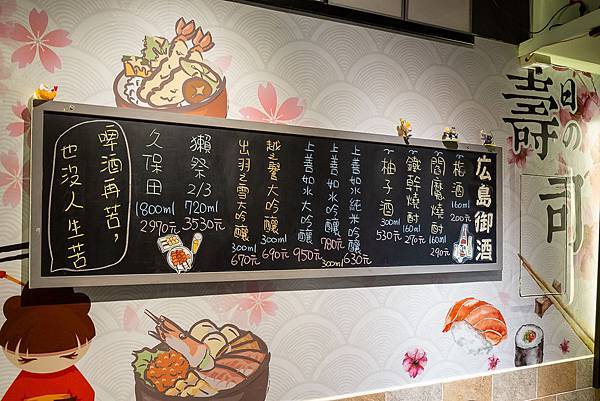 日の
壽司
広島御酒
梅酒
160ml
200元
閻魔燒酎
160ml
290元
鐵幹燒酎
160ml
270元
柚子酒
300ml
530元
上善如水純米吟釀
300ml 630元
上善如水吟釀
780元
上善如水大吟釀
950元
越之譽大吟釀
300ml
690元
出羽之雪大吟釀
300ml
670元
獺祭
2/3
720ml
3530元
久保田
1800ml
2970元
啤酒再苦，
也沒人生苦